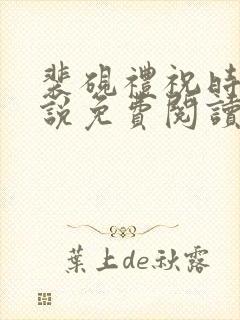 裴硯禮祝時
說免費閱讀
葉上de秋露